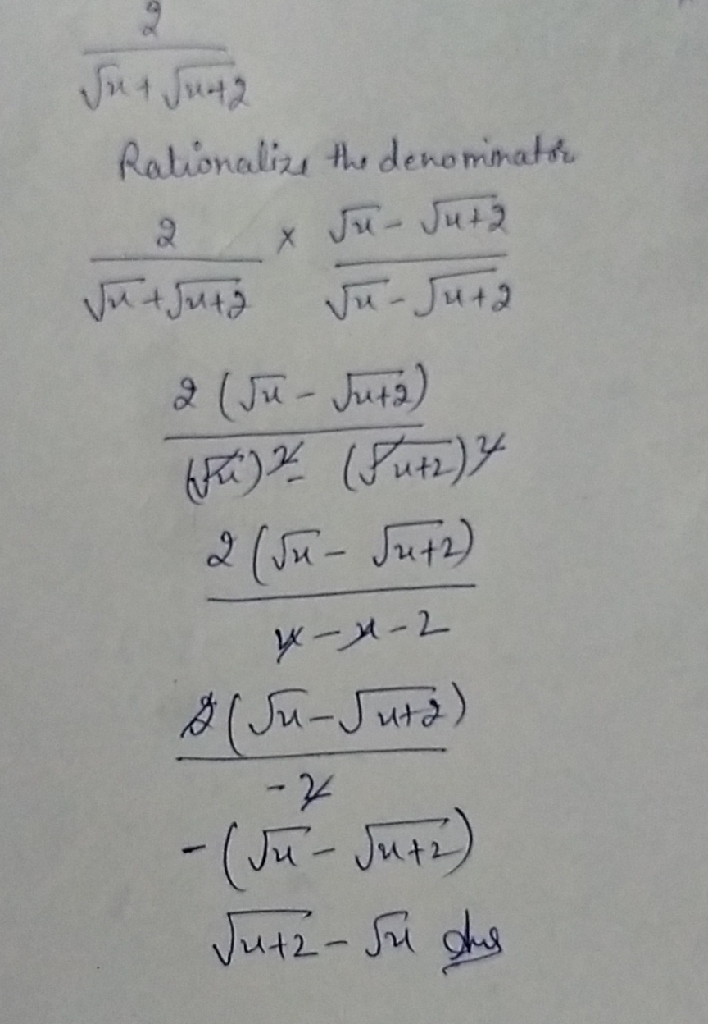 2
√x + √x+2
Rationalize the denominator
2 × √x - √x+2
√x + √x+2 √x - √x+2
2 (√x - √x+2)
(√x)2 - (√x+2)2
2 (√x - √x+2)
x - x - 2
2 (√x - √x+2)
-2
- (√x - √x+2)
√x+2 - √x Ans